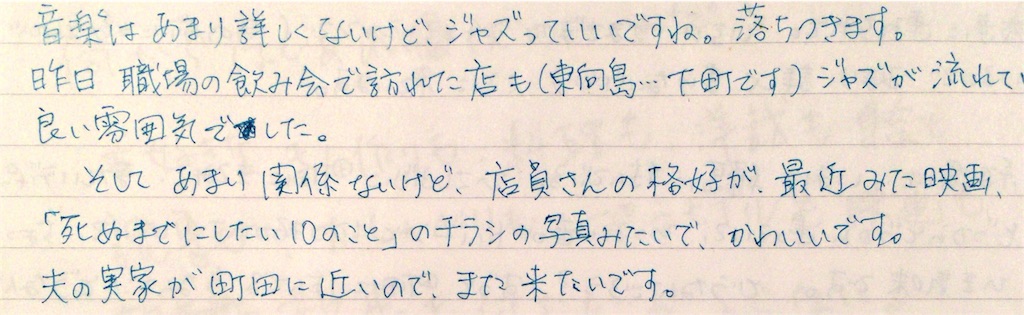 音楽はあまり詳しくないけど、ジャズっていいですね。落ちつきます。
昨日 職場の飲み会で訪れた店も(東向島…下町です)ジャズが流れてい
良い雰囲気でした。
そして あまり関係ないけど、店員さんの格好が、最近みた映画、
「死ぬまでにしたい10のこと」のチラシの写真みたいで、かわいいです。
夫の実家が町田に近いので、また来たいです。